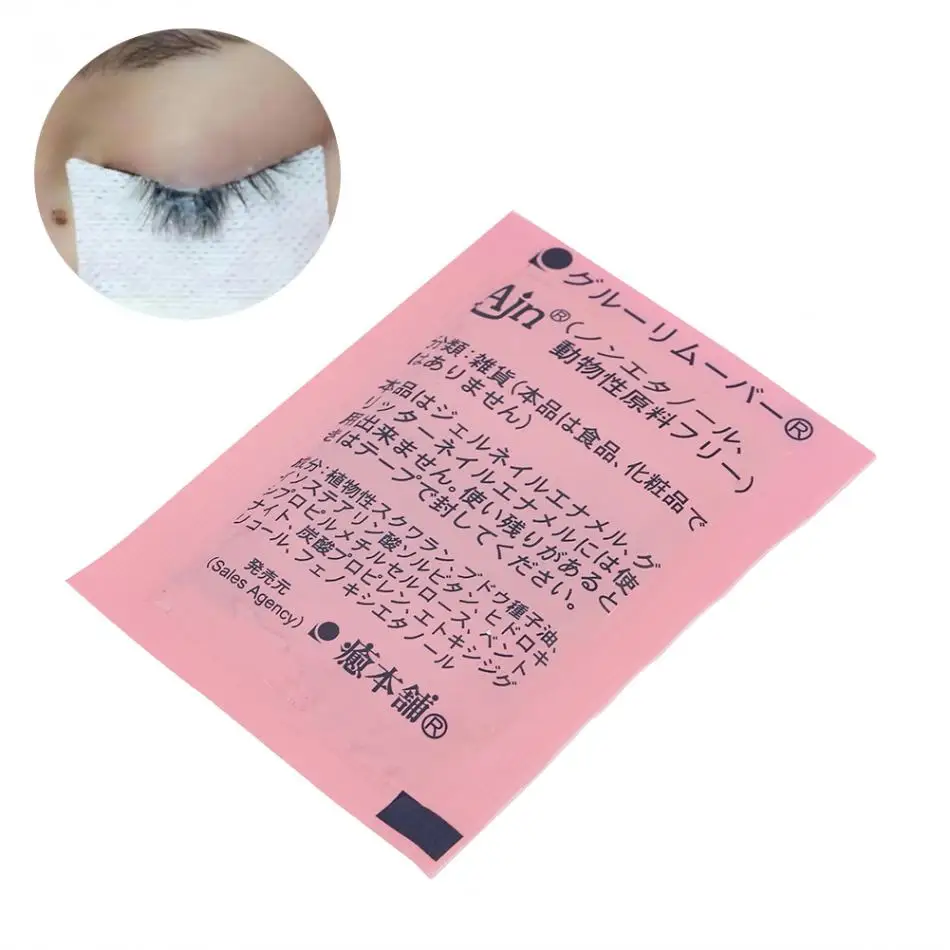 グルーリムーバー®
Ajn®(ノンエタノール、
動物性原料フリー)
分類:雑貨(本品は食品、化粧品で
はありません)
本品はジェルネイルエナメル、グ
リッターネイルエナメルには使
用出来ません。使い残りがあると
きはテープで封してください。
成分:植物性スクワラン、ブドウ種子油、
イソステアリン酸ソルビタン、ヒドロキ
シプロピルメチルセルロース、ベント
ナイト、炭酸プロピレン、エトキシジグ
リコール、フェノキシエタノール
発売元
(Sales Agency)
癒本舗®